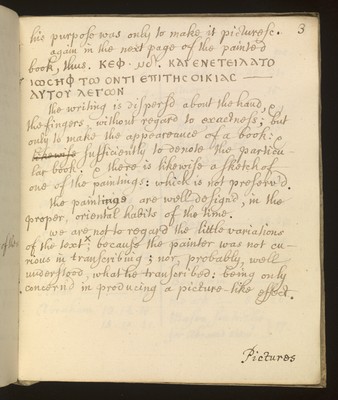 3
his purpose was only to make it picturesc.
again in the next page of the painted
book, thus. ΚΕΦ. ΚΑΙ ΕΝΕΤΕΙΛΑΤΟ
ΙΩCΗΦ ΤΩ ΟΝΤΙ ΕΠΙ ΤΗC ΟΙΚΙΑC
ΑΥΤΟΥ ΛΕΓΩΝ
the writing is dispersd about the hand, &
the fingers, without regard to exactness; but
only to make the appearance of a book: &
likewise sufficiently to denote the particu-
lar book. & there is likewise a sketch of
one of the paintings: which is not preserv'd.
the paintings are well designd, in the
proper, oriental habits of the time.
we are not to regard the little variations
of the text x; because the painter was not cu-
rious in transcribing; nor, probably, well
understood, what he transcribed: being only
concernd in producing a picture-like effect.
Pictures